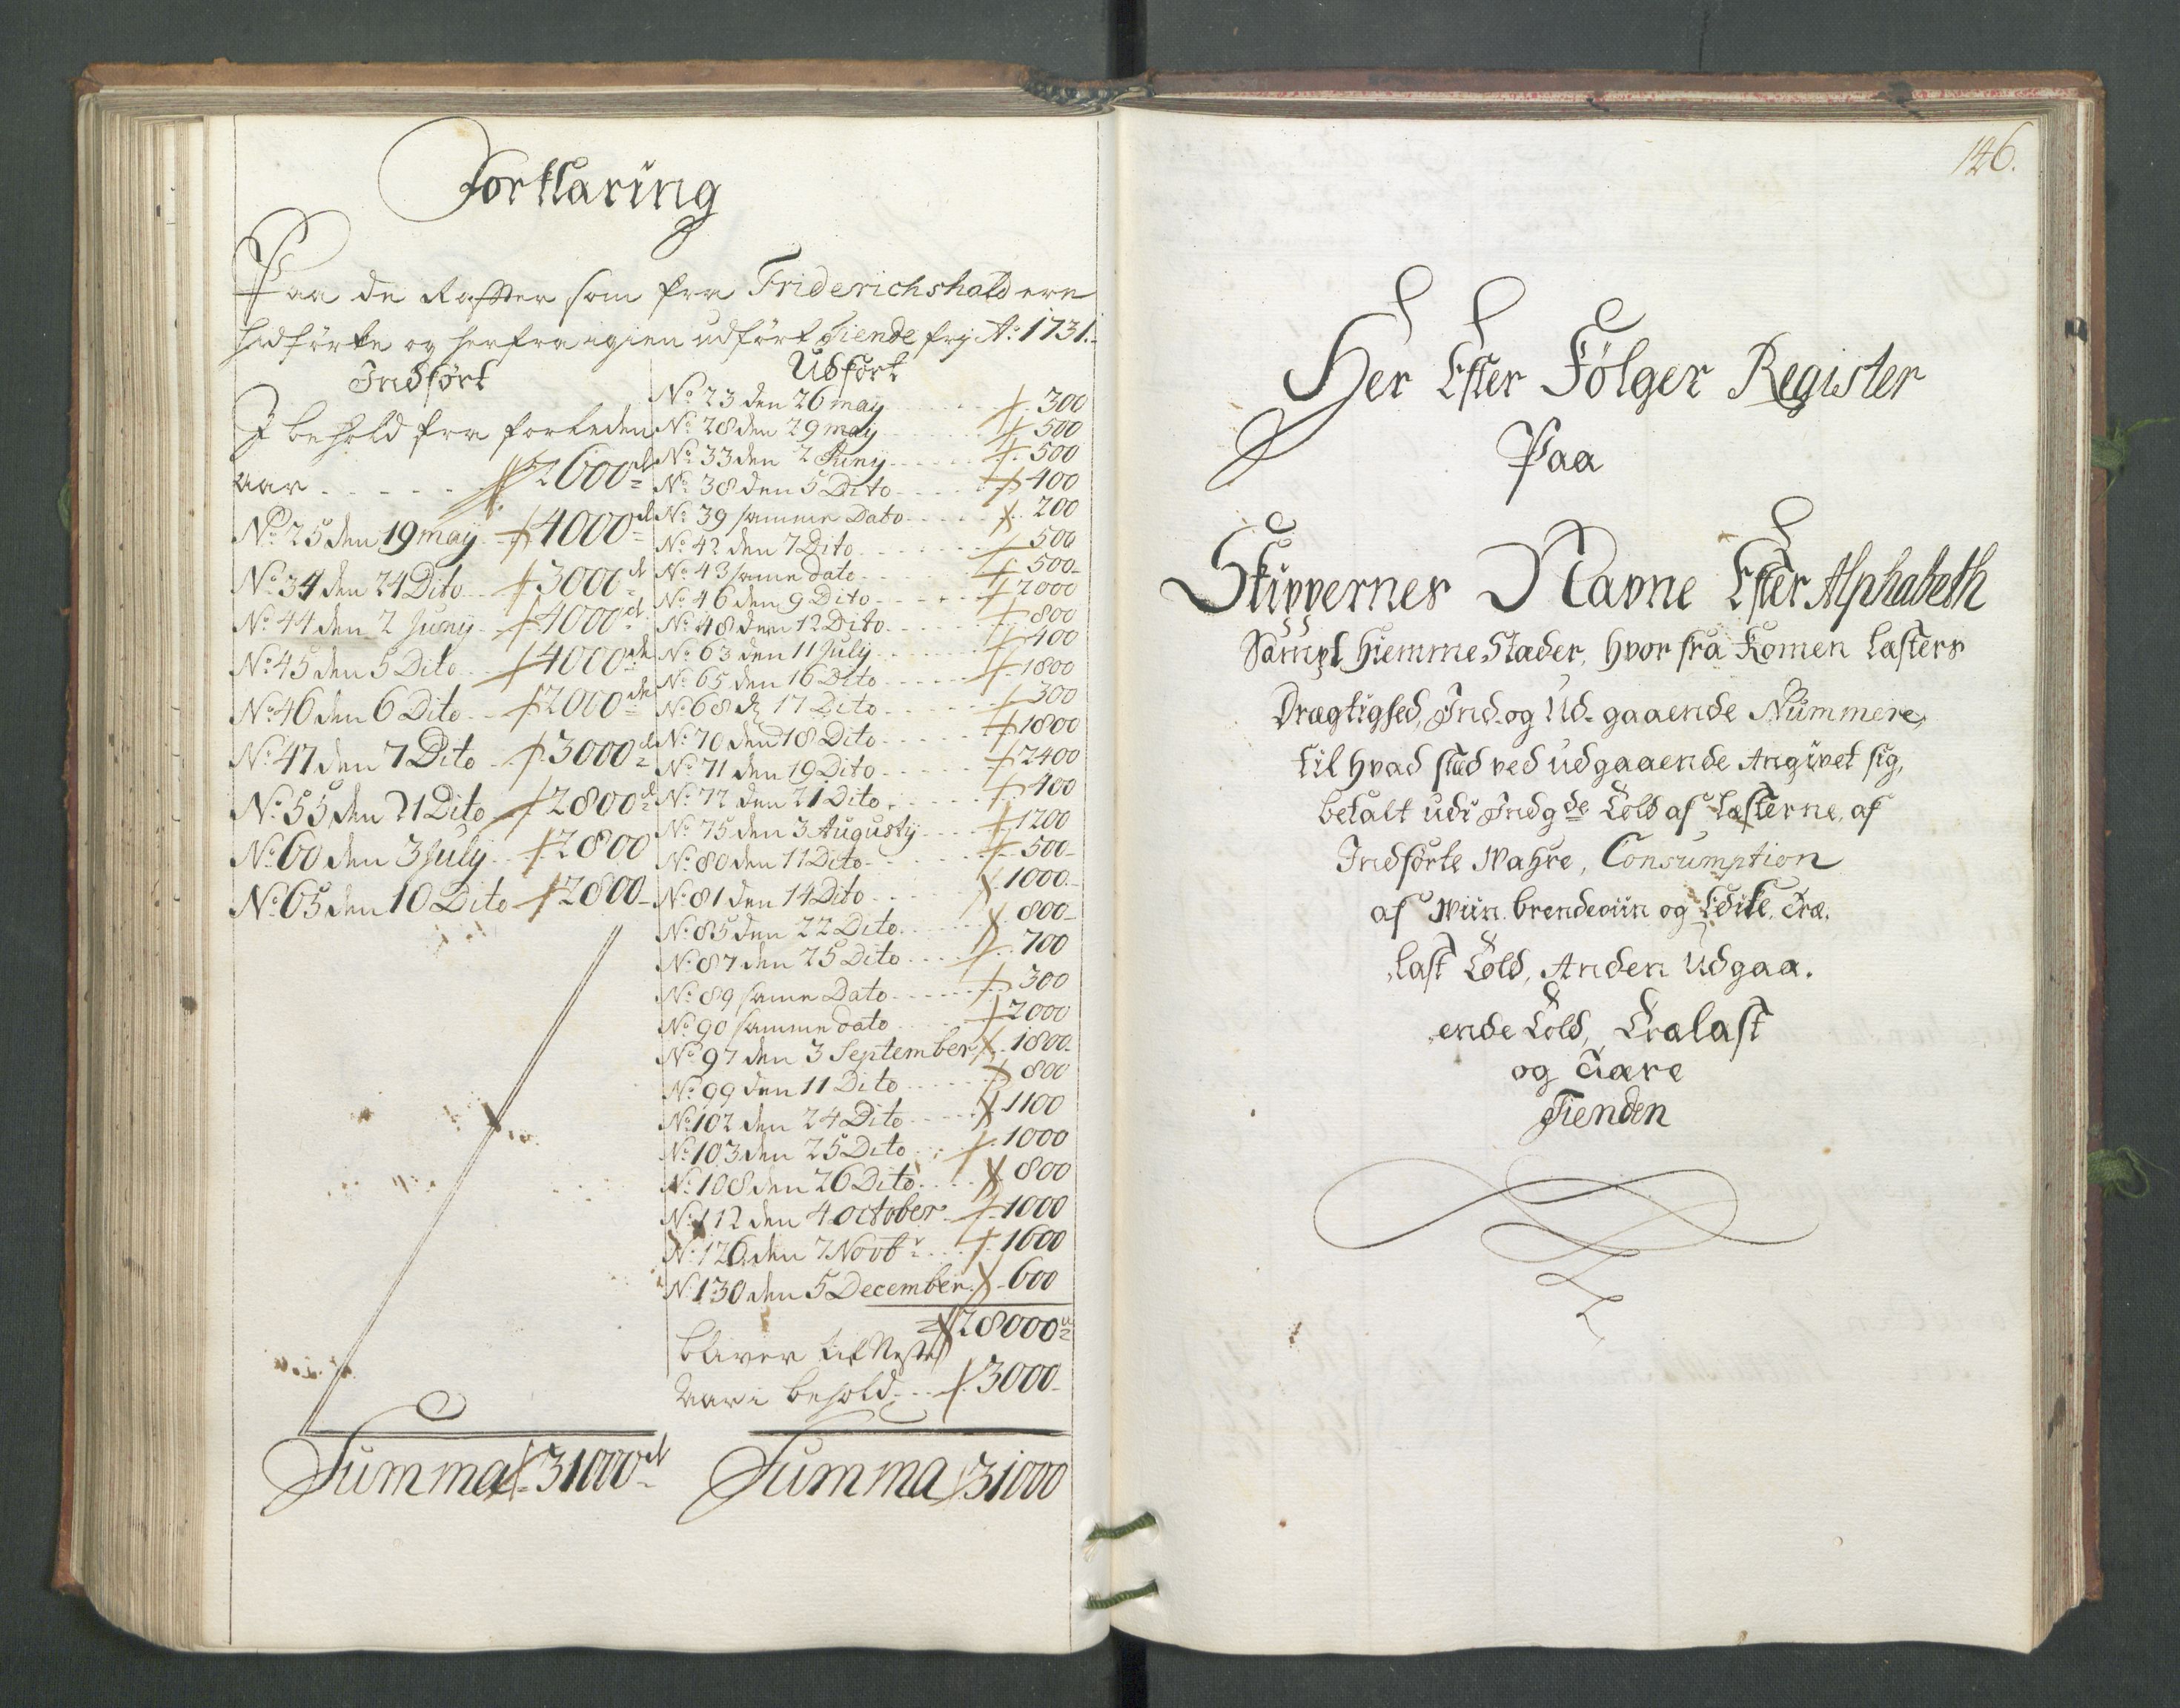 Forklaring
Paa de Raffter som fra Friderichshald ere
hidførte og herfra igien udført Tiende frj A:o 1731.
Indført
I behold fra forleden
aar . . . . . 2600 d
No 25 den 19 maij 4000 d
No 34 den 24 Dito 3000 d
No 44 den 2 Junij 4000 d
No 45 den 5 Dito 4000 de
No 46 den 6 Dito 2000 de
No 47 den 7 Dito 3000 d
No 55 den 21 Dito 2800 d
No 60 den 3 July 2800
No 65 den 10 Dito 2800
Summa 31000 d
Udført
No 23 den 26 maij 300
No 28 den 29 maij 500
No 33 den 2 Junij 500
No 38 den 5 Dito 400
No 39 samme Dato 200
No 42 den 7 Dito 500
No 43 same dato 500
No 46 den 9 Dito 2000
No 48 den 12 Dito 800
No 63 den 11 July 400
No 65 den 16 Dito 1800
No 68 d 17 Dito 300
No 70 den 18 Dito 1800
No 71 den 19 Dito 2400
No 72 den 21 Dito 400
No 75 den 3 Augusty 1200
No 80 den 11 Dito 500
No 81 den 14 Dito 1000
No 85 den 22 Dito 800
No 87 den 25 Dito 700
No 89 same Dato 300
No 90 samme dato 2000
No 97 den 3 September 1800
No 99 den 11 Dito 800
No 102 den 24 Dito 1100
No 103 den 25 Dito 1000
No 108 den 26 Dito 800
No 112 den 4 October 1000
No 126 den 7 Novbr 1600
No 130 den 5 December 600
28000
bliver til Neste
Aar i behold 3000
Summa 31000
126.
Her Efter Følger Register
Paa
Skippernes Navne Efter Alphabeth
Sampt Hiemme Stæder, hvor fra Komen Læsters
Drægtighed, Ind og Ud-gaaende Nummere,
til hvad stæd ved udgaaende Angivet sig,
betalt udi Indgde Told af Læsterne, af
Indførte Wahre, Consumption
af Wiin. brendeviin og Edike. Træ.
last Told, Anden Udgaa.
ende Told, Trælast
og Tiære
Tienden